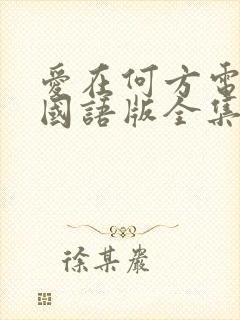 愛在何方電
國語版全集
徐某嚴